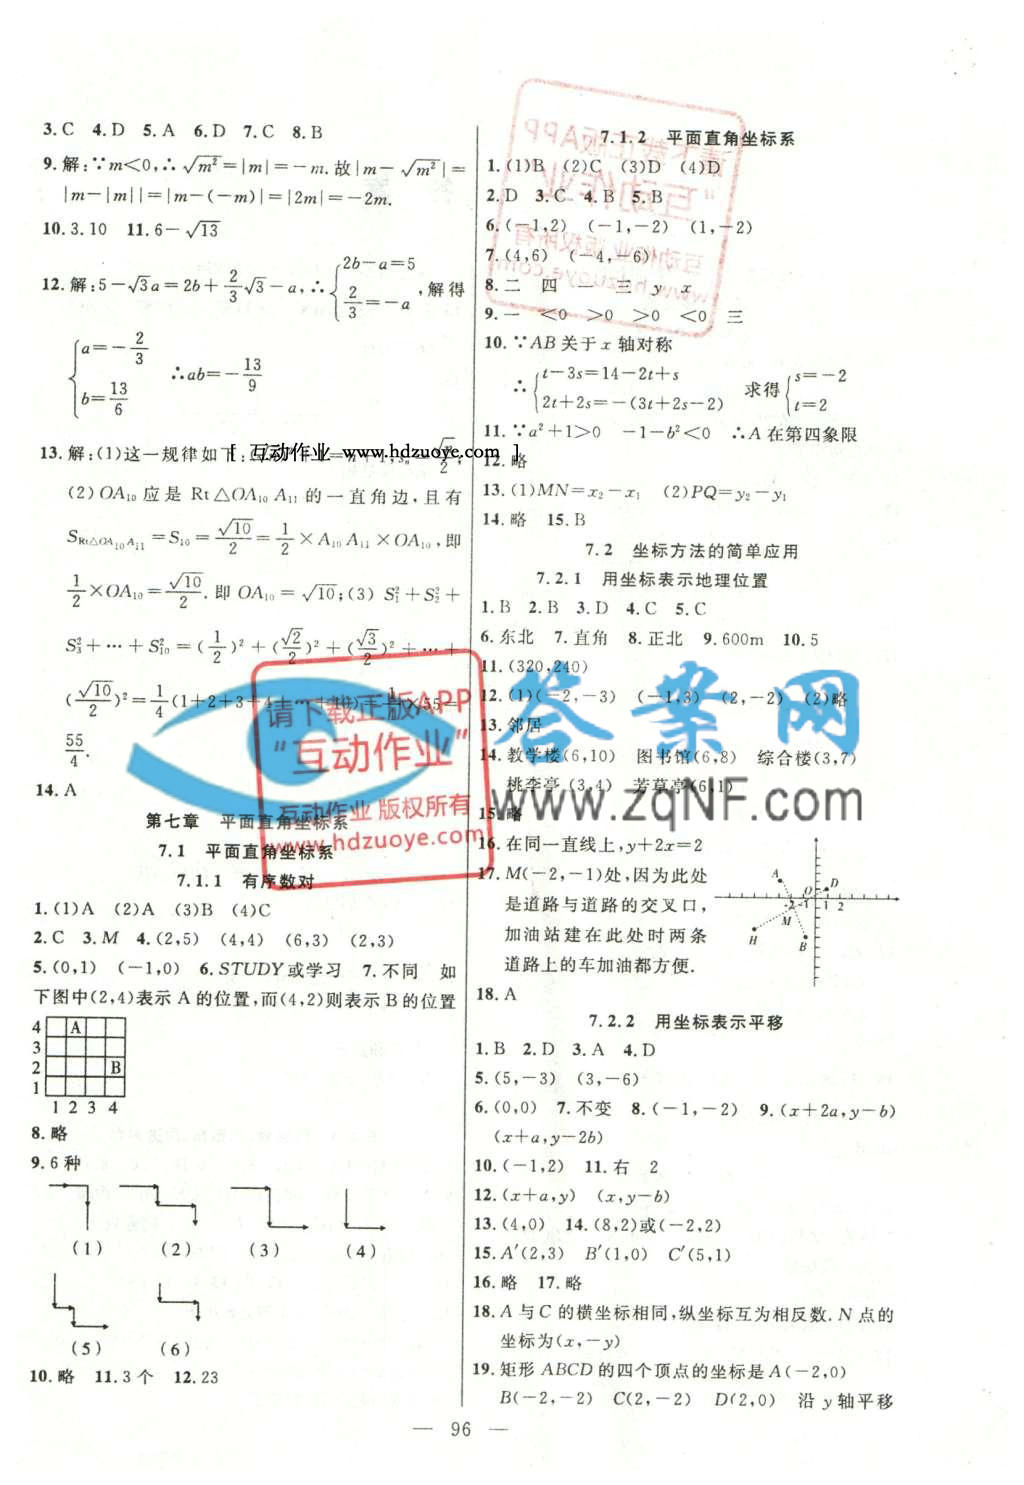 3.C  4.D  5.A  6.D  7.C  8.B
9.解:∵m<0,∴√m²=|m|=-m.故|m-√m²|=
|m-|m||=|m-(-m)|=|2m|=-2m.
10.3.10  11.6-√13
12.解:5-√3a=2b+2/3√3-a,∴{2b-a=5
2/3=-a,解得
{a=-2/3
b=13/6  ∴ab=-13/9
13.解:(1)这一规律如下:
[ 互动作业 www.hdzuoye.com ]
(2)OA₁₀应是Rt△OA₁₀A₁₁的一直角边,且有
S_Rt△OA₁₀A₁₁=S₁₀=√10/2=1/2×A₁₀A₁₁×OA₁₀,即
1/2×OA₁₀=√10/2.即OA₁₀=√10;(3)S₁²+S₂²+
S₃²+…+S₁₀²=(1/2)²+(√2/2)²+(√3/2)²+…+
(√10/2)²=1/4(1+2+3+4+…+10)=1/4×55=
55/4.
14.A
第七章 平面直角坐标系
7.1 平面直角坐标系
7.1.1 有序数对
1.(1)A  (2)A  (3)B  (4)C
2.C  3.M  4.(2,5)  (4,4)  (6,3)  (2,3)
5.(0,1)  (-1,0)  6.STUDY或学习  7.不同  如
下图中(2,4)表示A的位置,而(4,2)则表示B的位置
4 A
3
2 B
1
1 2 3 4
8.略
9.6种
(1) (2) (3) (4)
(5) (6)
10.略  11.3个  12.23
7.1.2 平面直角坐标系
1.(1)B  (2)C  (3)D  (4)D
2.D  3.C  4.B  5.B
6.(-1,2)  (-1,-2)  (1,-2)
7.(4,6)  (-4,-6)
8.二  四  一  三  y  x
9.一  <0  >0  >0  <0  三
10.∵AB关于x轴对称
∴{t-3s=14-2t+s
2t+2s=-(3t+2s-2)  求得{s=-2
t=2
11.∵a²+1>0  -1-b²<0  ∴A在第四象限
12.略
13.(1)MN=x₂-x₁  (2)PQ=y₂-y₁
14.略  15.B
7.2 坐标方法的简单应用
7.2.1 用坐标表示地理位置
1.B  2.B  3.D  4.C  5.C
6.东北  7.直角  8.正北  9.600m  10.5
11.(320,240)
12.(1)(-2,-3)  (-1,3)  (2,-2)  (2)略
13.邻居
14.教学楼(6,10)  图书馆(6,8)  综合楼(3,7)
桃李亭(3,4)  芳草亭(6,1)
15.略
16.在同一直线上,y+2x=2
17.M(-2,-1)处,因为此处
是道路与道路的交叉口,
加油站建在此处时两条
道路上的车加油都方便.
A O D
-2 -1 1 2
M
H B
18.A
7.2.2 用坐标表示平移
1.B  2.D  3.A  4.D
5.(5,-3)  (3,-6)
6.(0,0)  7.不变  8.(-1,-2)  9.(x+2a,y-b)
(x+a,y-2b)
10.(-1,2)  11.右  2
12.(x+a,y)  (x,y-b)
13.(4,0)  14.(8,2)或(-2,2)
15.A′(2,3)  B′(1,0)  C′(5,1)
16.略  17.略
18.A与C的横坐标相同,纵坐标互为相反数.N点的
坐标为(x,-y)
19.矩形ABCD的四个顶点的坐标是A(-2,0)
B(-2,-2)  C(2,-2)  D(2,0)  沿y轴平移
— 96 —
请下载正版APP
“互动作业”
互动作业 版权所有
www.hdzuoye.com
请下载正版APP
“互动作业”
互动作业 版权所有
www.hdzuoye.com
答案网
www.zqNF.com